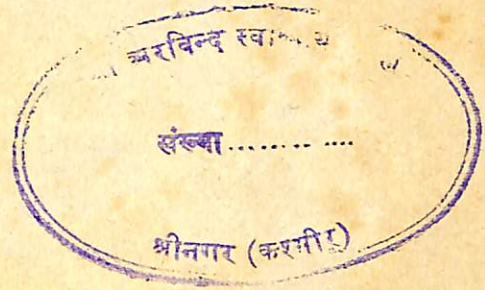 अरविन्द
संख्या ............
श्रीनगर (कश्मीर)